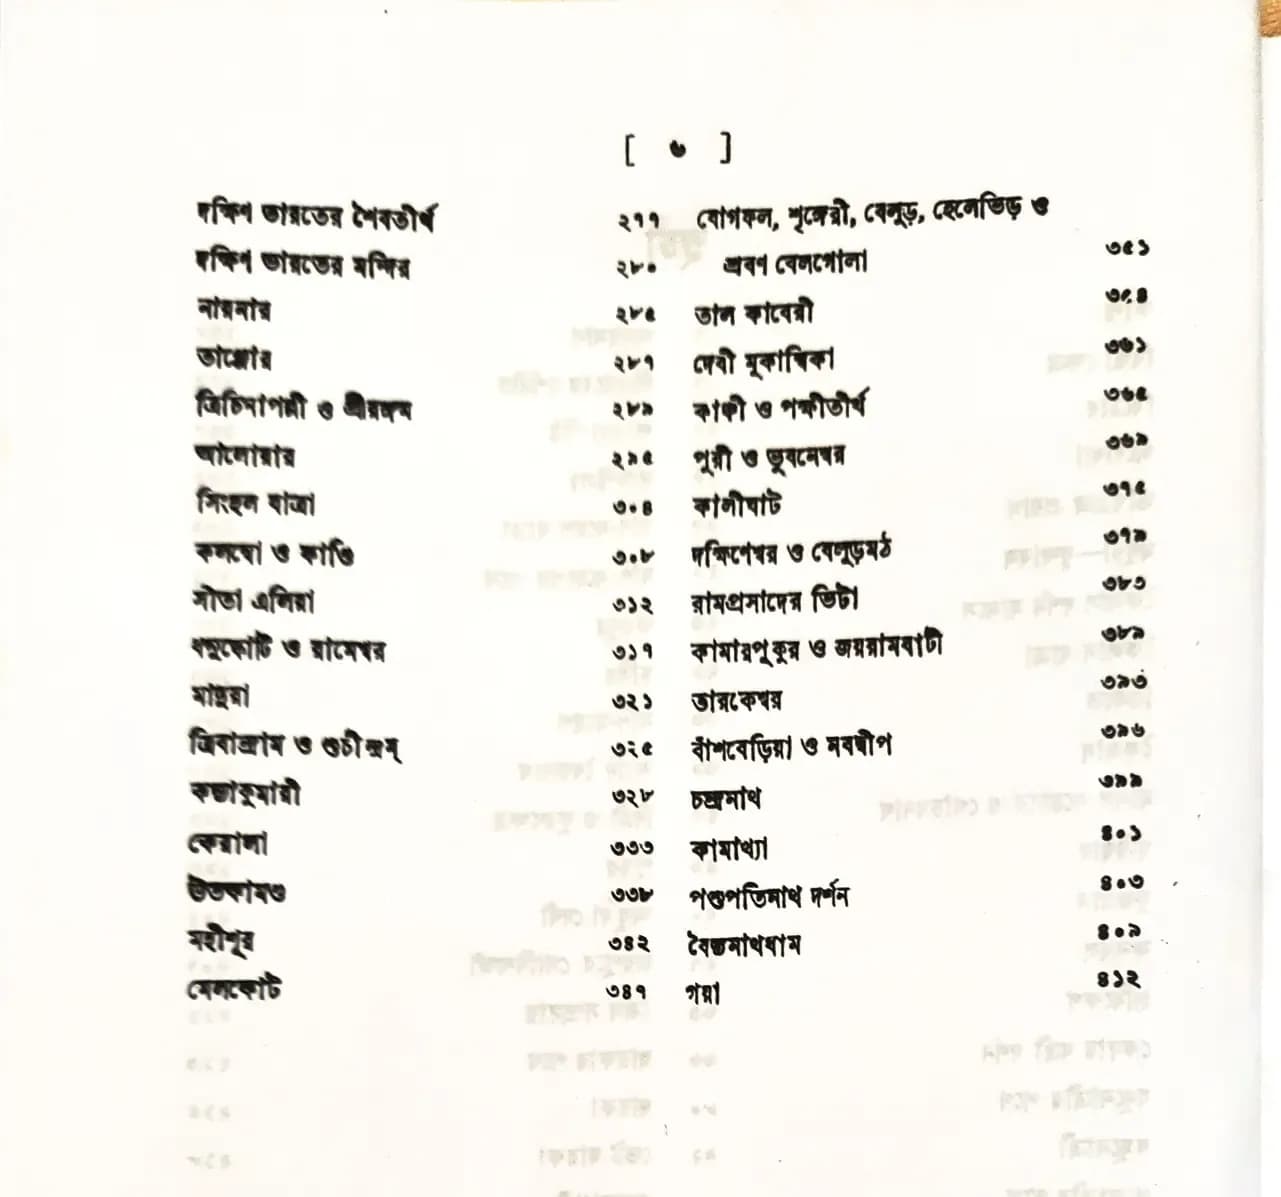 [ ৬ ]
দক্ষিণ ভারতের শৈবতীর্থ ২৭৭
দক্ষিণ ভারতের মন্দির ২৮০
নায়নার ২৮৫
তাঞ্জোর ২৮৭
ত্রিচিনাপল্লী ও শ্রীরঙ্গম ২৮৯
আলোয়ার ২৯৫
সিংহল যাত্রা ৩০৪
কলম্বো ও কাণ্ডি ৩০৮
সীতা এলিয়া ৩১২
ধনুষ্কোটি ও রামেশ্বর ৩১৭
মাদুরা ৩২১
ত্রিবান্দ্রাম ও শুচীন্দ্রম্ ৩২৫
কন্যাকুমারী ৩২৮
কেরালা ৩৩৩
উতকামণ্ড ৩৩৮
মহীশূর ৩৪২
মেলকোট ৩৪৭
যোগফল, শৃঙ্গেরী, বেলুড়, হেলেভিড় ও
শ্রবণ বেলগোলা ৩৫১
তাল কাবেরী ৩৫৪
দেবী মূকাম্বিকা ৩৬১
কাঞ্চী ও পক্ষীতীর্থ ৩৬৫
পুরী ও ভুবনেশ্বর ৩৬৯
কালীঘাট ৩৭৫
দক্ষিণেশ্বর ও বেলুড়মঠ ৩৭৯
রামপ্রসাদের ভিটা ৩৮৩
কামারপুকুর ও জয়রামবাটী ৩৮৯
তারকেশ্বর ৩৯৩
বাঁশবেড়িয়া ও নবদ্বীপ ৩৯৬
চন্দ্রনাথ ৩৯৯
কামাখ্যা ৪০১
পশুপতিনাথ দর্শন ৪০৩
বৈদ্যনাথধাম ৪০৯
গয়া ৪১২